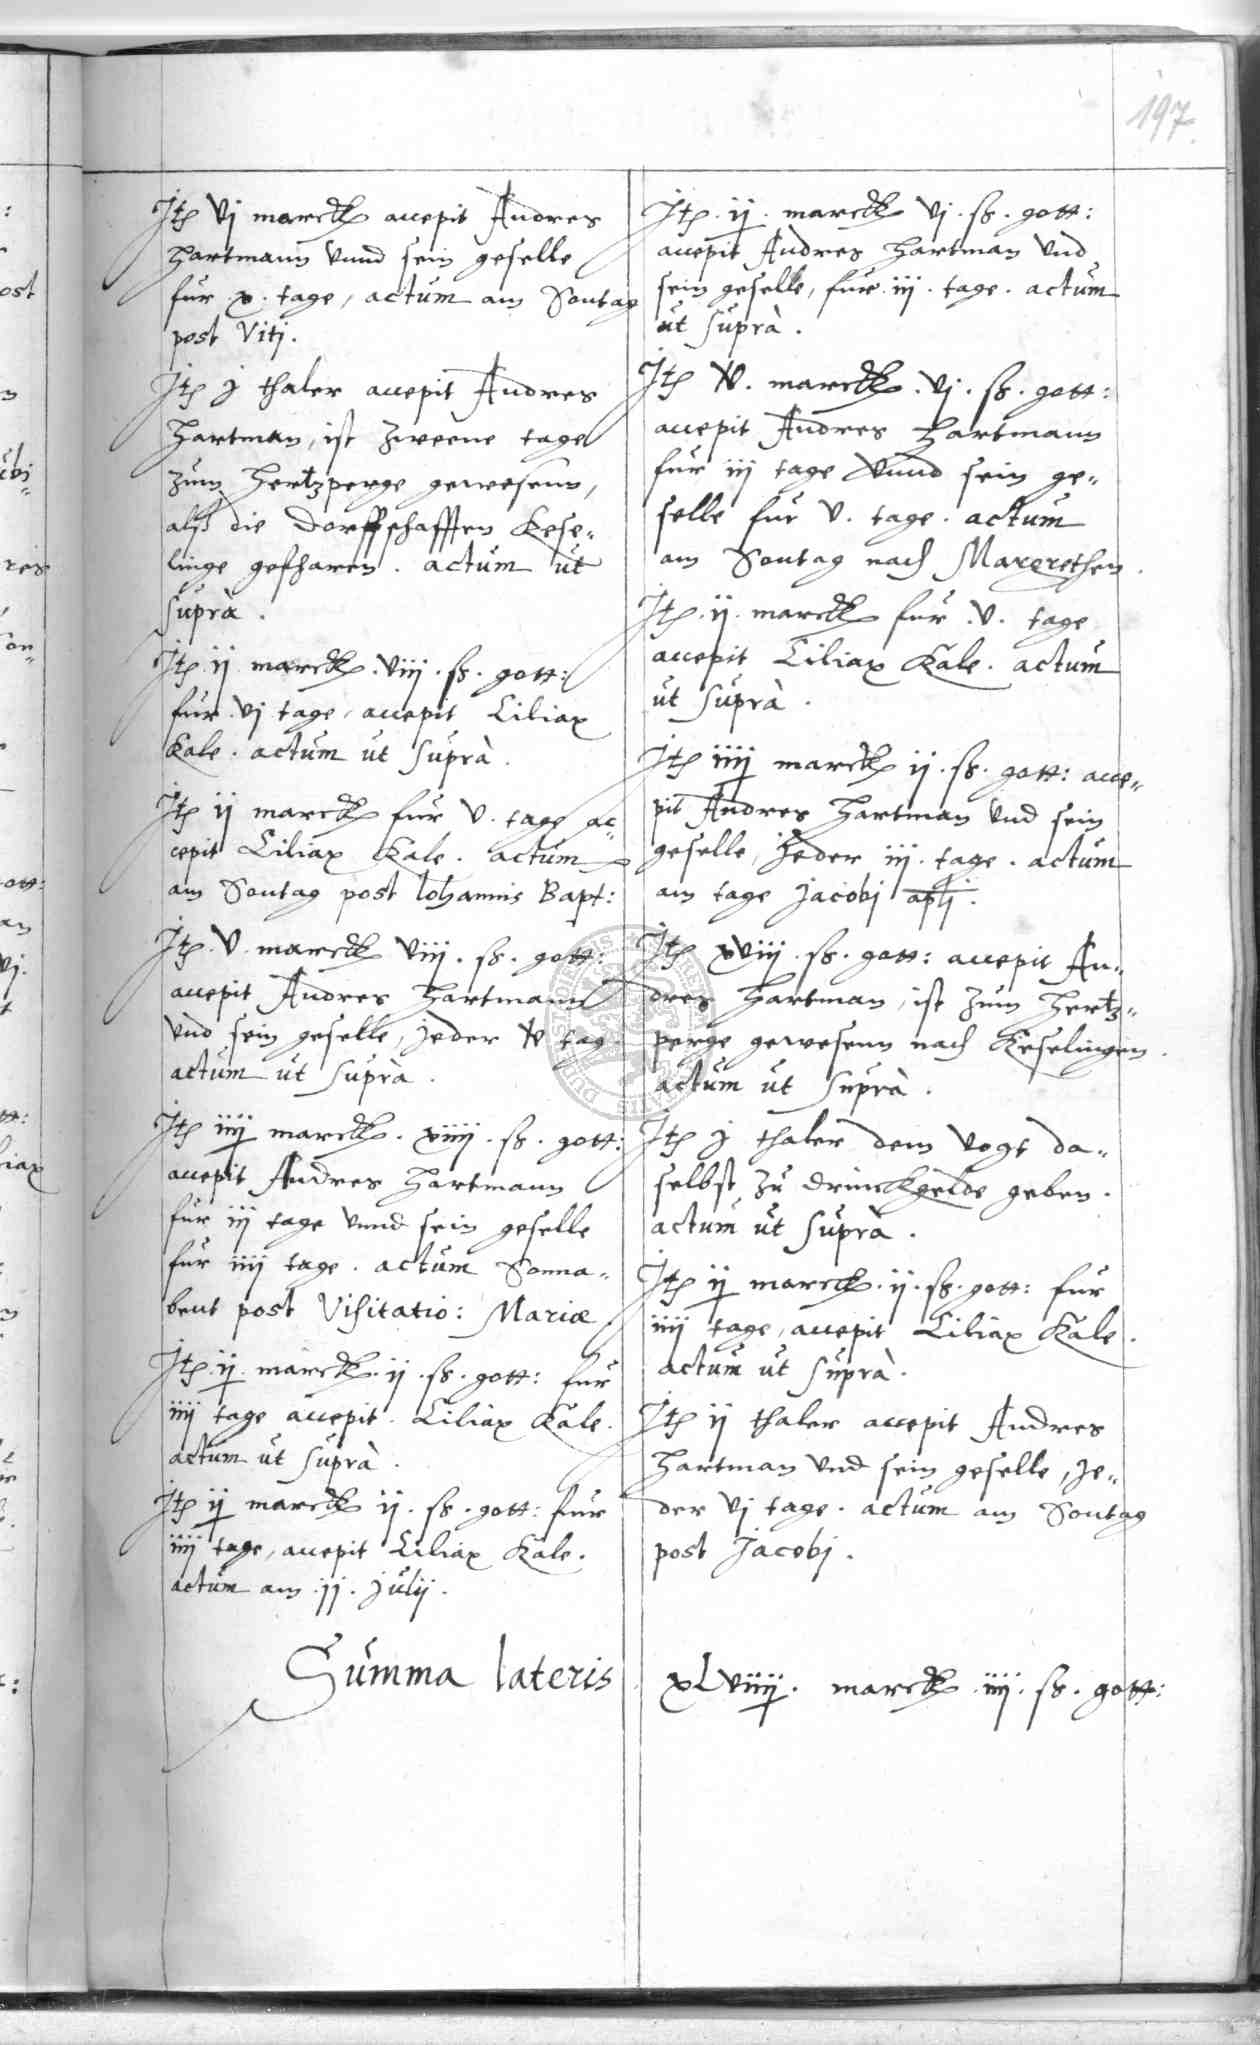 197.
Jtem vj marck accepit Andres
Hartmann vnnd sein geselle
fur .x. tage, actum am Sontag
post Viti.
Jtem j thaler accepit Andres
Hartman, ist zweene tage
zum Hertzperge gewesenn,
alß die dorffschafften Kese„
linge gefharen. actum ut
suprà.
Jtem ij marck .viij. ß. gott:
fur .vj tage, accepit Ciliax
Kale. actum ut suprà.
Jtem ij marck fur v. tage ac„
cepit Ciliax Kale. actum
am Sontag post Iohannis Bapt:
Jtem .v. marck viij. ß. gott:
accepit Andres Hartmann
vnd sein geselle, jeder v tag
actum ut suprà.
Jtem iiij marck. xiiij. ß. gott:
accepit Andres Hartmann
fur iij tage vnnd sein geselle
fur iiij tage. actum Sonna„
bent post Visitatio: Mariæ.
Jtem .ij. marck. ij. ß. gott: fur
iiij tage accepit. Ciliax Kale.
actum ut suprà.
Jtem ij marck ij. ß. gott: fur
iiij tage, accepit Ciliax Kale.
actum am .jj. Julij.
Jtem .ij. marck vj. ß. gott:
accepit Andres Hartman vnd
sein geselle, fur .iij. tage. actum
ut suprà.
Jtem v. marck. vj. ß. gott:
accepit Andres Hartmann
fur iij tage vnnd sein ge„
selle fur v. tage. actum
am Sontag nach Margrethen.
Jtem .ij. marck fur .v. tage
accepit Ciliax Kale. actum
ut suprà.
Jtem iiij marck ij. ß. gott: acce„
pit Andres Hartman vnd sein
geselle, jeder iij. tage. actum
am tage Jacobj aplj.
Jtem xviij. ß. gott: accepit An„
dres Hartman, ist zum Hertz„
perge gewesenn nach Keselingen.
actum ut suprà.
Jtem j thaler dem vogt da„
selbst zu drinckgelde geben.
actum ut suprà.
Jtem ij marck. ij. ß. gott: fur
iiij tage, accepit Ciliax Kale.
actum ut suprà.
Jtem ij thaler accepit Andres
Hartman vnd sein geselle, je„
der vj tage. actum am Sontag
post Jacobj.
Summa lateris xLviiij. marck .iiij. ß. gott: